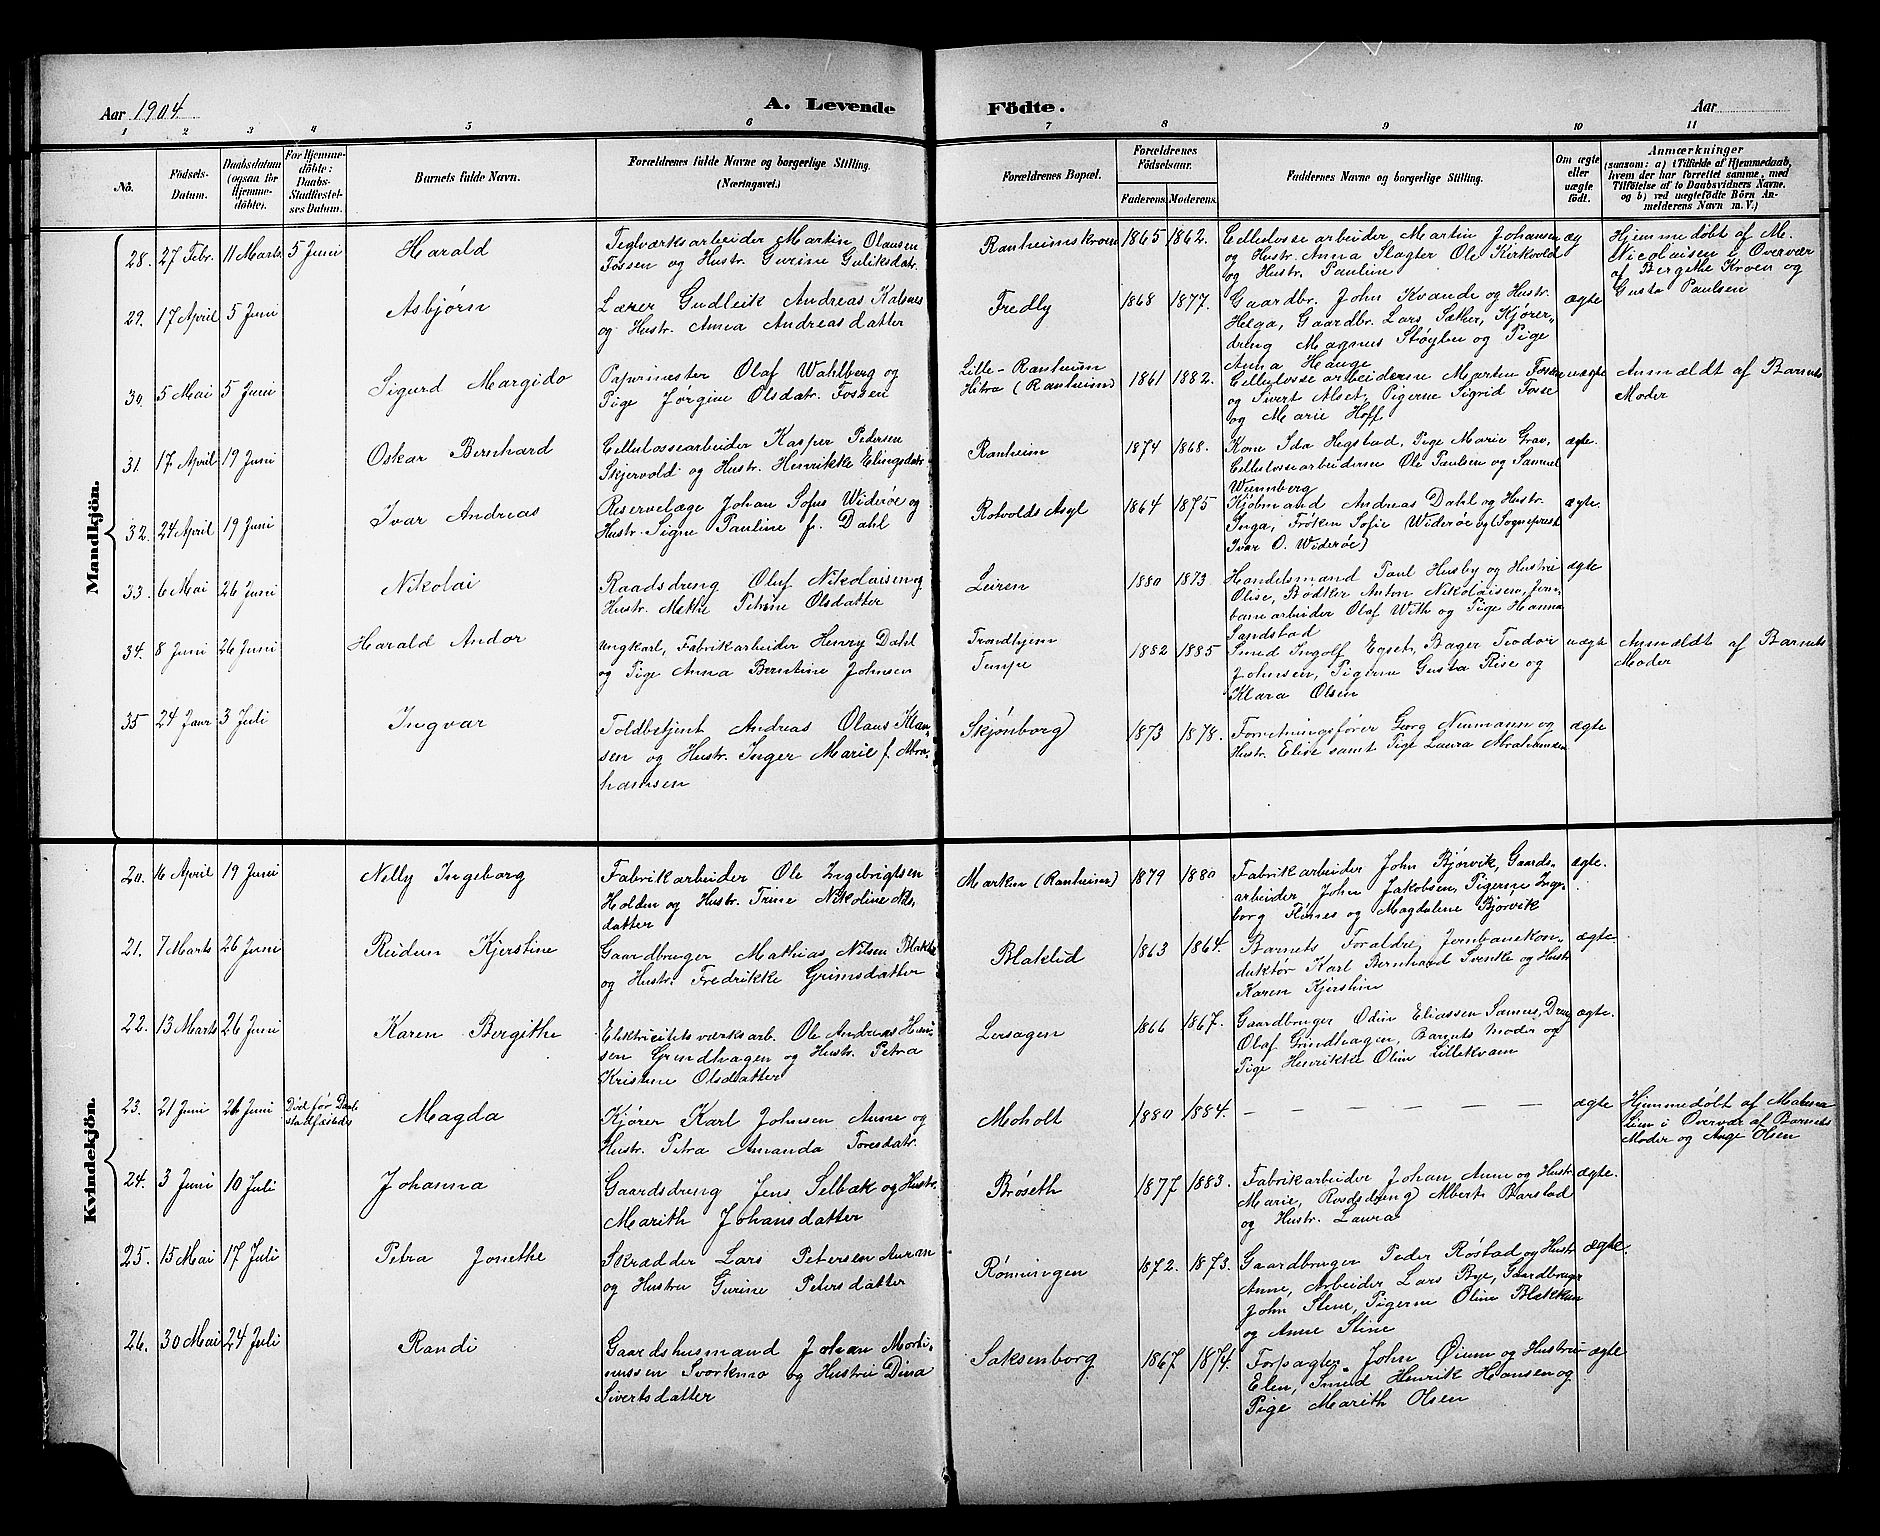 Aar 1904.
A. Levende Födte.
Aar
1 2 3 4 5 6 7 8 9 10 11
No.
Födsels-Datum.
Daabsdatum (ogsaa for Hjemme-döbte).
For Hjemme-döbte: Daabs-Stadfæstel-ses Datum.
Barnets fulde Navn.
Forældrenes fulde Navne og borgerlige Stilling. (Næringsvei.)
Forældrenes Bopæl.
Forældrenes Födselsaar.
Faderens. Moderens.
Faddernes Navne og borgerlige Stilling.
Om ægte eller uægte födt.
Anmærkninger
(saasom: a) i Tilfælde af Hjemmedaab, hvem der har forrettet samme, med Tilföielse af to Daabsvidners Navne, og b) ved uægtefödte Börn An-melderens Navn m. V.)
Mandkjön.
28. 27 Febr. 11 Marts 5 Juni Harald
Teglværksarbeider Martin Olausen
Fossen og Hustr. Gurine Guliksdatr.
Ranheimskroen 1865 1862.
Cellulosse arbeider Martin Johansen
og Hustr. Anna Slagter Ole Kirkvold
og Hustr. Pauline
æg
Hjemmedøbt af M.
Nicolaisen i Overvær
af Bergithe Kroen og
Gusta Paulsen
29. 17 April 5 Juni Asbjørn
Lærer Gudleik Andreas Kalsnes
og Hustr. Anna Andreasdatter
Fredly 1868 1877.
Gaardbr. John Kvande og Hustr.
Helga, Gaardbr. Lars Sæther, Kjører-
dreng Magnus Støylen og Pige
Anna Hauge
ægte
30. 5 Mai 5 Juni Sigurd Margido
Papirmester Olaf Wahlberg og
Pige Jørgine Olsdatr. Fossen
Lille-Ranheim
Hitra (Ranheim) 1861 1882.
Cellulosse arbeiderne Marten Fosse
og Sivert Alset, Pigerne Sigrid Fosse
og Marie Hoff
uægte
Anmældt af Barnets
Moder
31. 17 April 19 Juni Oskar Bernhard
Cellulossearbeider Kasper Pedersen
Skjervold og Hustr. Henrikke Elingsdatr.
Ranheim 1874 1868.
Kone Ida Hegstad, Pige Marie Grav,
Cellulossearbeiderne Ole Paulsen og Samuel
Wennberg
ægte.
32. 24 April 19 Juni Ivar Andreas
Reservelæge Johan Sofus Widerøe og
Hustr. Signe Pauline f. Dahl
Rotvolds Asyl 1864 1875
Kjøbmand Andreas Dahl og Hustr.
Inga, Frøken Sofie Widerøe og (Sogneprest
Ivar O. Widerøe)
ægte.
33. 6 Mai 26 Juni Nikolai
Raadsdreng Oluf Nikolaisen og
Hustr. Mette Petrine Olsdatter
Leiren 1880 1873.
Handelsmand Paul Husby og Hustru
Olise, Bødker Anton Nikolaisen, Jern-
banearbeider Olaf With og Pige Hanna
Sandstad
ægte
34. 8 Juni 26 Juni Harald Andor
Ungkarl, Fabrikarbeider Henry Dahl
og Pige Anna Berntine Johnsen
Trondhjem
Tempe 1882 1885
Smed Ingolf Egset, Bager Teodor
Johnsen, Pigerne Gusta Rise og
Klara Olsen
uægte
Anmældt af Barnets
Moder
35 24 Janr 3 Juli Ingvar
Toldbetjent Andreas Olaus Klau-
sen og Hustr. Inger Marie f. Abra-
hamsen
Skjønborg) 1873 1878.
Forretningsfører Georg Neumann og
Hustr. Elise samt Pige Laura Abrahamsen
ægte
Kvindekjön.
20. 16 April 19 Juni Nelly Ingeborg
Fabrikarbeider Ole Ingebrigtsen
Holden og Hustr. Trine Nikoline Nils-
datter
Marken (Ranheim) 1879 1880
Fabrikarbeider John Bjørvik, Gaards-
arbeider John Jakobsen, Pigerne Inge-
borg Renes og Magdalene Bjørvik
ægte.
21. 7 Marts 26 Juni Reidun Kjerstine
Gaardbruger Mathias Nilsen Blaklid
og Hustr. Fredrikke Grimsdatter
Blaklid 1863 1864.
Barnets Foraldre, Jernbanekon-
duktør Karl Bernhard Svenke og Hustr.
Karen Kjerstine
ægte.
22. 13 Marts 26 Juni Karen Bergithe
Elektricitetsværksarb. Ole Andreas Han-
sen Grindhagen og Hustr. Petra
Kristine Olsdatter
Lersagen 1866 1867.
Gaardbruger Odin Eliassen Samnes, Dreng
Olaf Grindhagen, Barnets Moder og
Pige Henrikke Oline Lillekvam
ægte.
23. 21 Juni 26 Juni Død før Daabs
stadfæstedes Magda
Kjører Karl Johnsen Aune og
Hustr. Petra Amanda Toresdatr.
Moholt 1880 1884.
— — — — — —
ægte
Hjemmedøbt af Malena
Lien i Overvær af Barnets
Moder og Aage Olsen
24. 3 Juni 10 Juli Johanna
Gaardsdreng Jens Selbæk og Hustr.
Marith Johansdatter
Brøseth 1877 1883.
Fabrikarbeider Johan Aune og Hustr.
Marie, Raadsdreng) Albert Barstad
og Hustr. Laura
ægte.
25. 15 Mai 17 Juli Petra Jonethe
Skrædder Lars Petersen Auran
og Hustru Gurine Petersdatter
Rønningen 1872. 1873.
Gaardbruger Peder Røstad og Hustr.
Anne, Arbeider Lars Bye, Gaardbruger
John Stene, Pigerne Oline Blekkan
og Anne Stine
ægte.
26. 30 Mai 24 Juli Randi
Gaardshusmand Johan Morti-
nussen Svorkmo og Hustru Dina
Sivertsdatter
Saksenborg 1867 1874.
Forpagter John Øium og Hustru
Elen, Smed Henrik Hansen og
Pige Marith Olsen
ægte